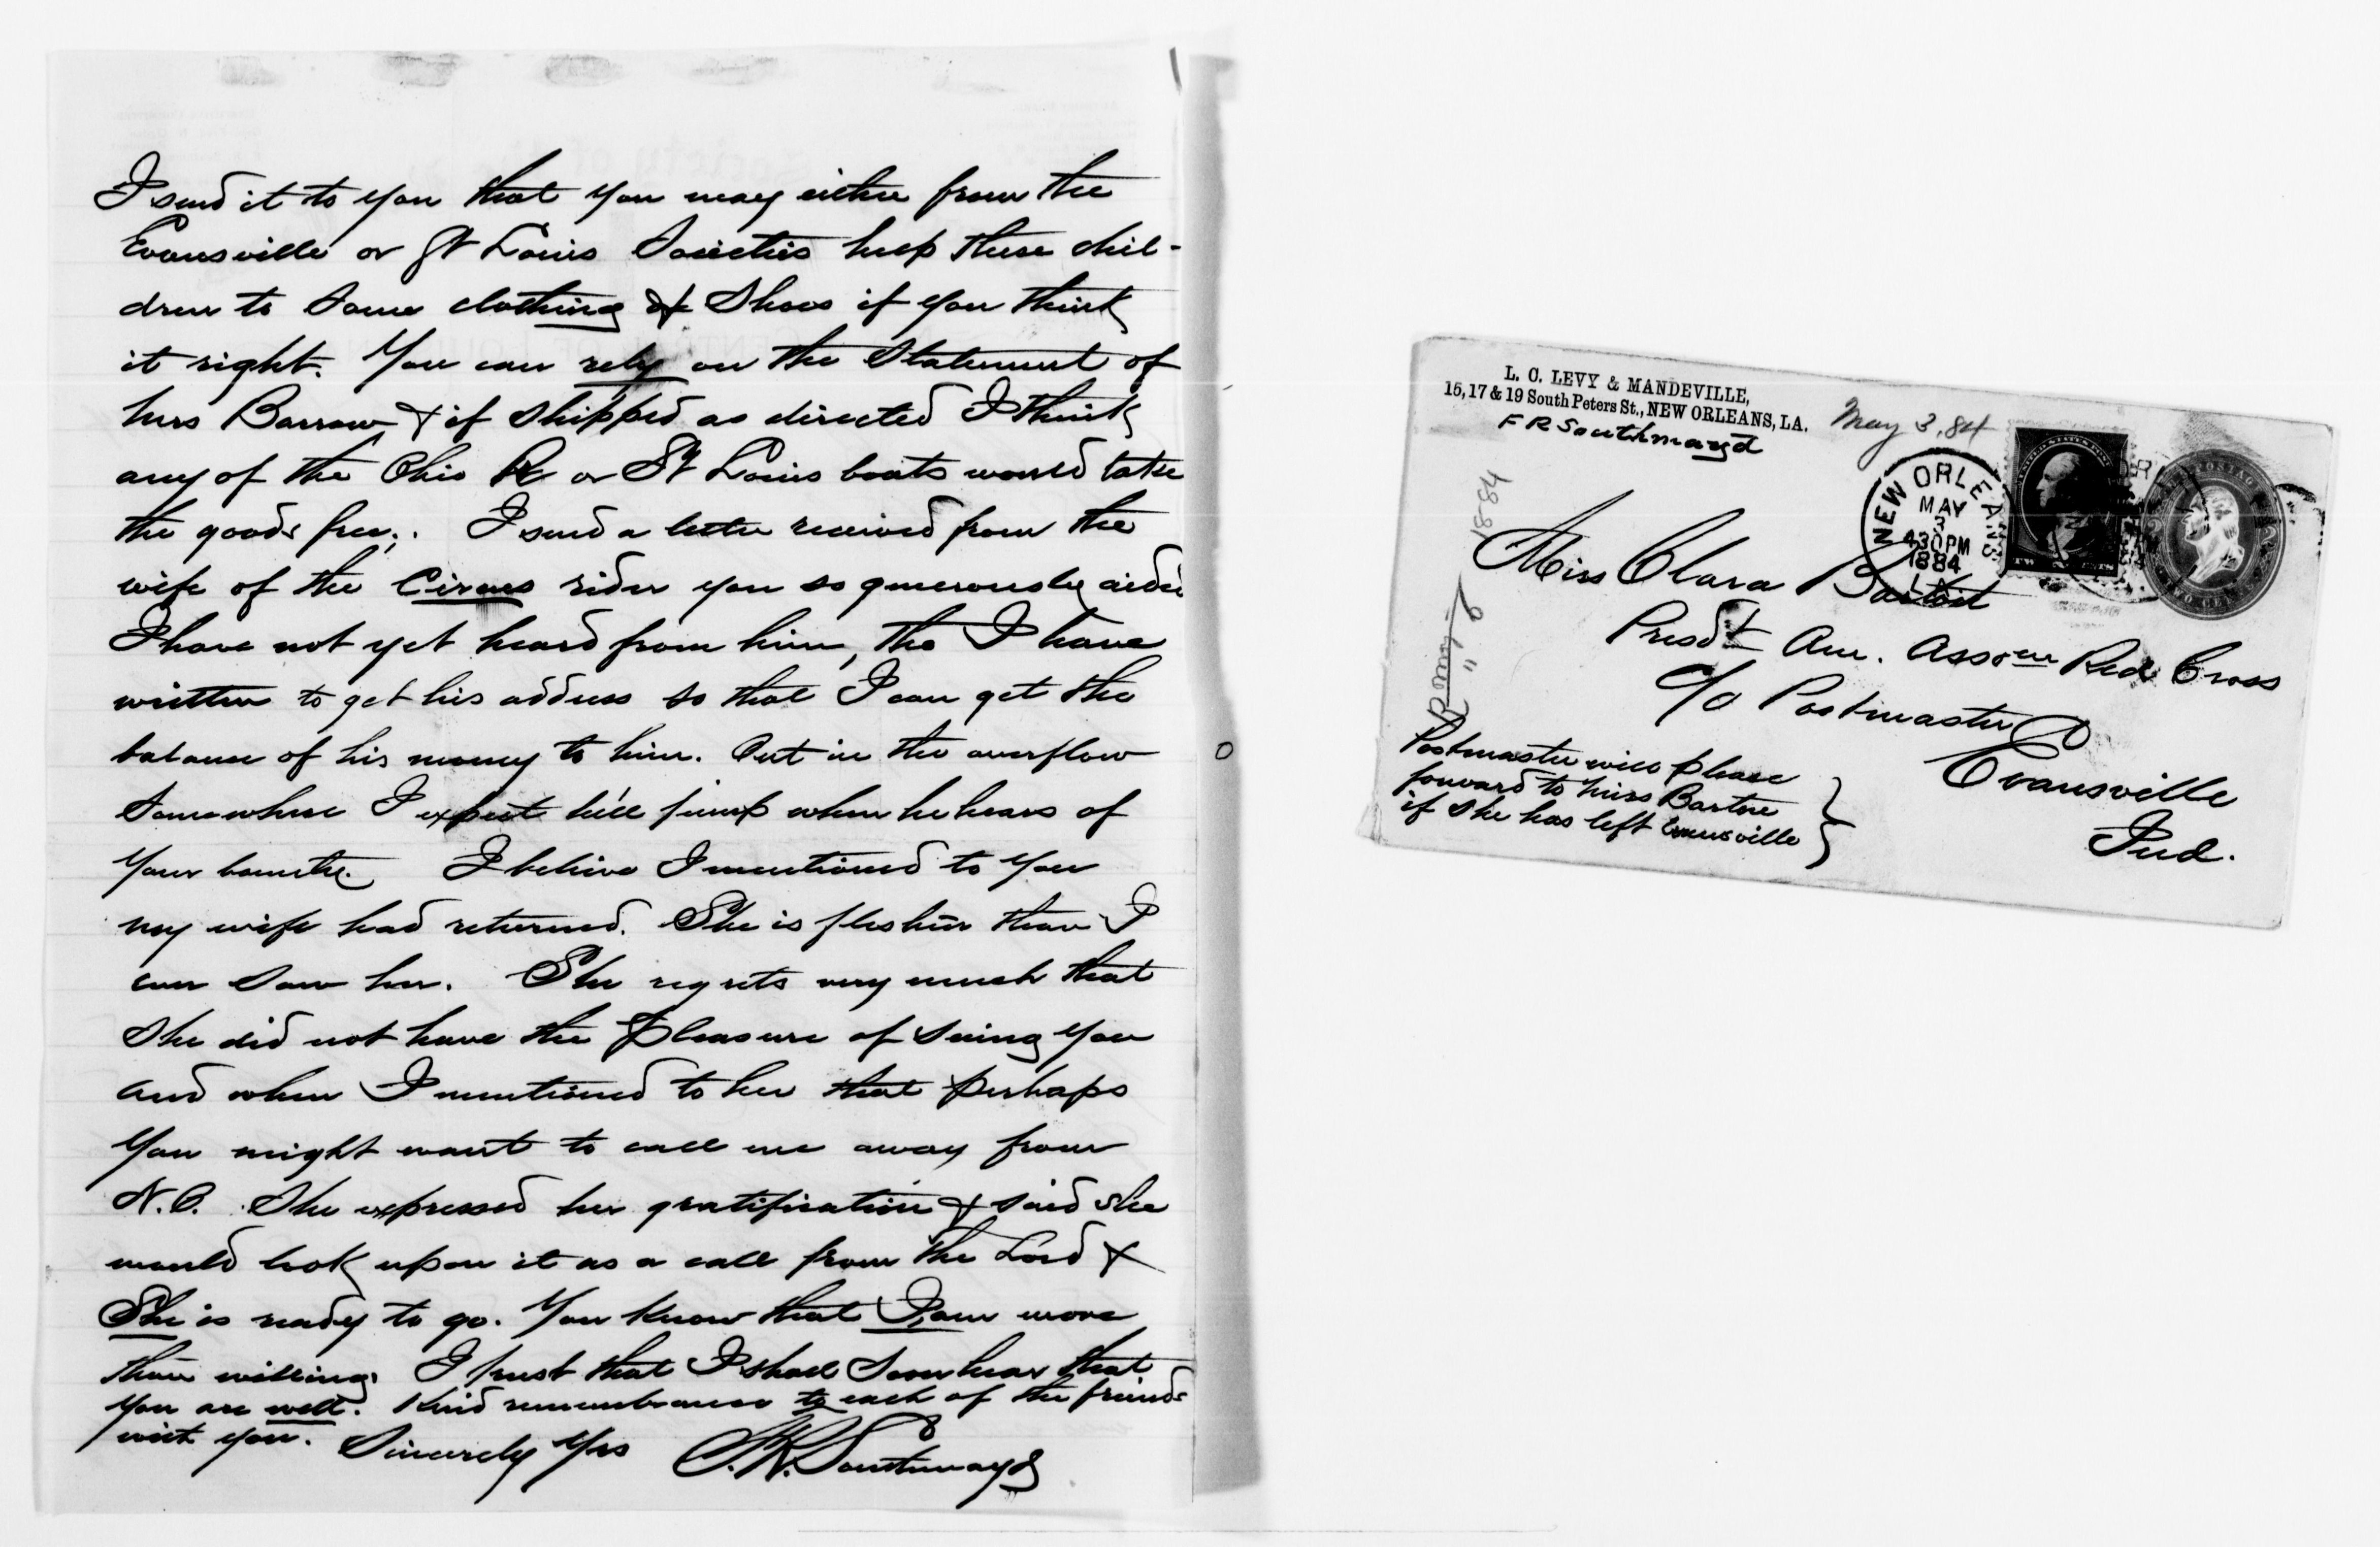 I send it to you that you may either from the
Evansville or St Louis Societies help these chil-
dren to some clothing & Shoes if you think
it right. You can rely on the Statement of
Mrs Barrow, & if shipped as directed I think
any of the Ohio R or St Louis boats would take
the goods free. I send a letter received from the
wife of the Circus rider you so generously aided
I have not yet heard from him, tho I have
written to get his address so that I can get the
balance of his money to him. Out in the overflow
somewhere I expect he'll jump when he hears of
your bounty. I believe I mentioned to you
my wife had returned. She is fleshier than I
ever saw her. She regrets very much that
She did not have the pleasure of seeing you
and when I mentioned to her that perhaps
you might want to call me away from
N.O. She expressed her gratification & said she
would look upon it as a call from the Lord &
She is ready to go. You know that I am more
than willing. I trust that I shall soon hear that
you are well. Kind remembrances to each of the friends
with you. Sincerely Yrs F.R. Southmayd
L. C. LEVY & MANDEVILLE,
15, 17 & 19 South Peters St., NEW ORLEANS, LA.
F R Southmayd
May 3, 84
NEW ORLEANS
MAY
3
430PM
1884
LA
Miss Clara Barton
Presdt Am. Assocn Red Cross
c/o Postmaster
Evansville
Ind.
Postmaster will please
forward to Miss Barton
if she has left Evansville
1884